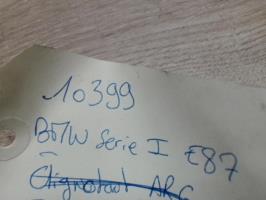 10399
BMW Serie I E87
Clignotant ARG